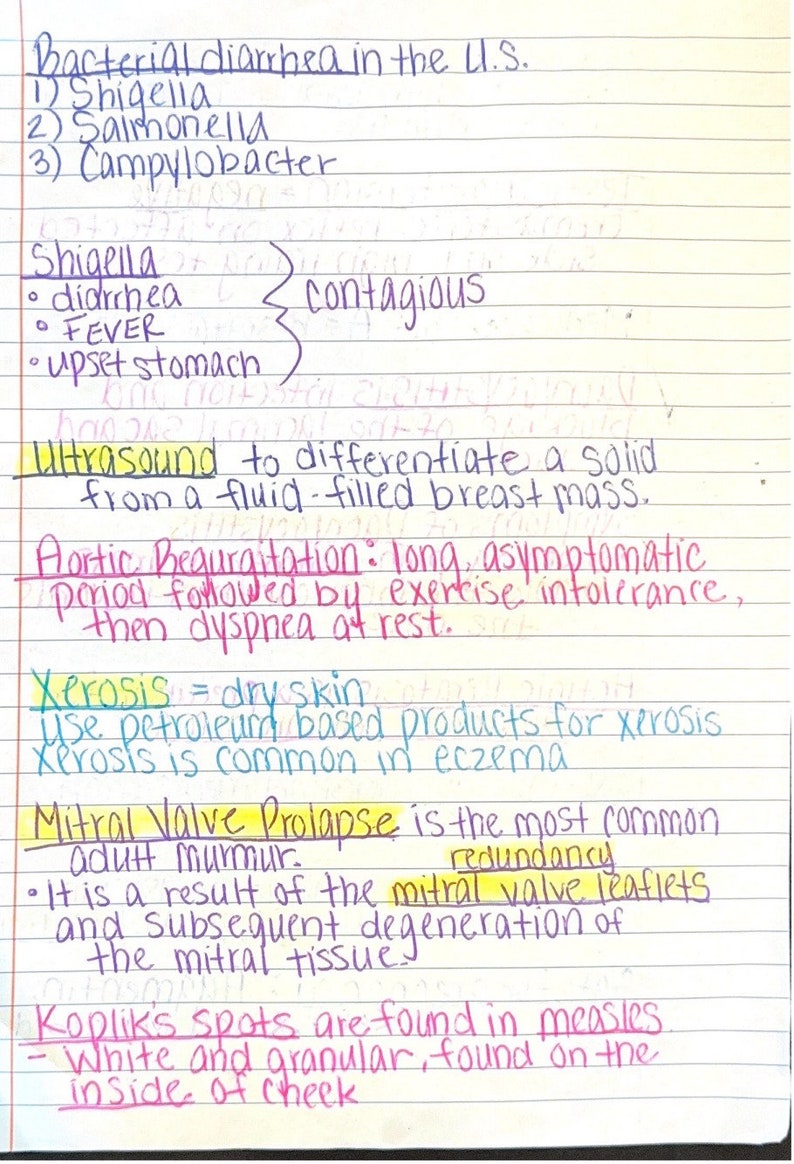 Bacterial diarrhea in the U.S.
1) Shigella
2) Salmonella
3) Campylobacter
Shigella
• diarrhea
• FEVER
• upset stomach
contagious
Ultrasound to differentiate a solid
from a fluid-filled breast mass.
Aortic Regurgitation: long, asymptomatic
period followed by exercise intolerance,
then dyspnea at rest.
Xerosis = dry skin
use petroleum based products for xerosis
xerosis is common in eczema
Mitral Valve Prolapse is the most common
adult murmur.
redundancy
• It is a result of the mitral valve leaflets
and subsequent degeneration of
the mitral tissue.
Koplik's spots are found in measles
- White and granular, found on the
inside of cheek